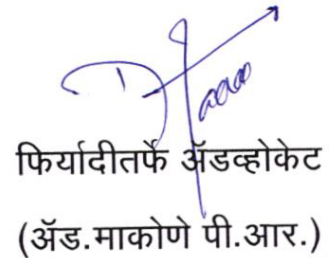 फिर्यादीतर्फे ॲडव्होकेट
(ॲड.माकोणे पी.आर.)